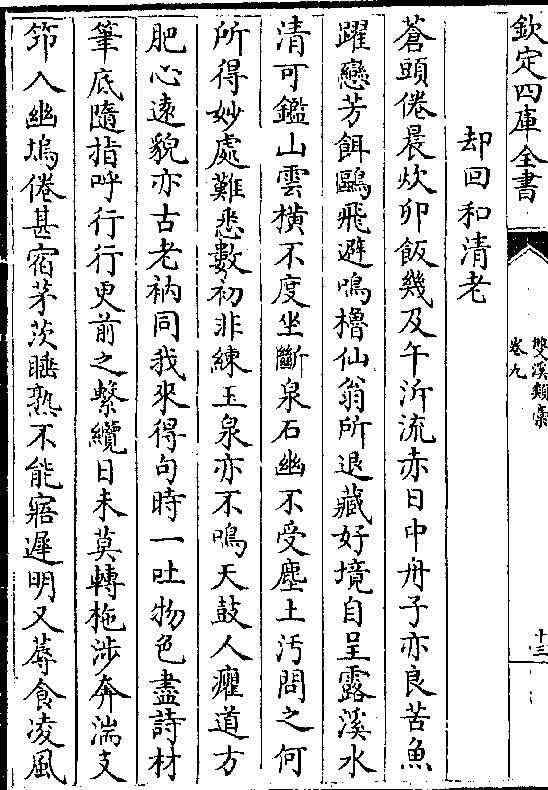 欽定四庫全書
雙溪類稾
卷九
十三
却回和清老
蒼頭倦晨炊卯飯幾及午沂流赤日中舟子亦良苦魚
躍戀芳餌鷗飛避鳴櫓仙翁所退藏好境自呈露溪水
清可鑑山雲橫不度坐斷泉石幽不受塵土汚問之何
所得妙處難悉數初非練玉泉亦不鳴天鼓人癯道方
肥心逺貌亦古老衲同我來得句時一吐物色盡詩材
筆底隨指呼行行更前之繫纜日未莫轉柂涉奔湍支
笻入幽塢倦甚宿茅茨睡熟不能寤遲明又蓐食凌風